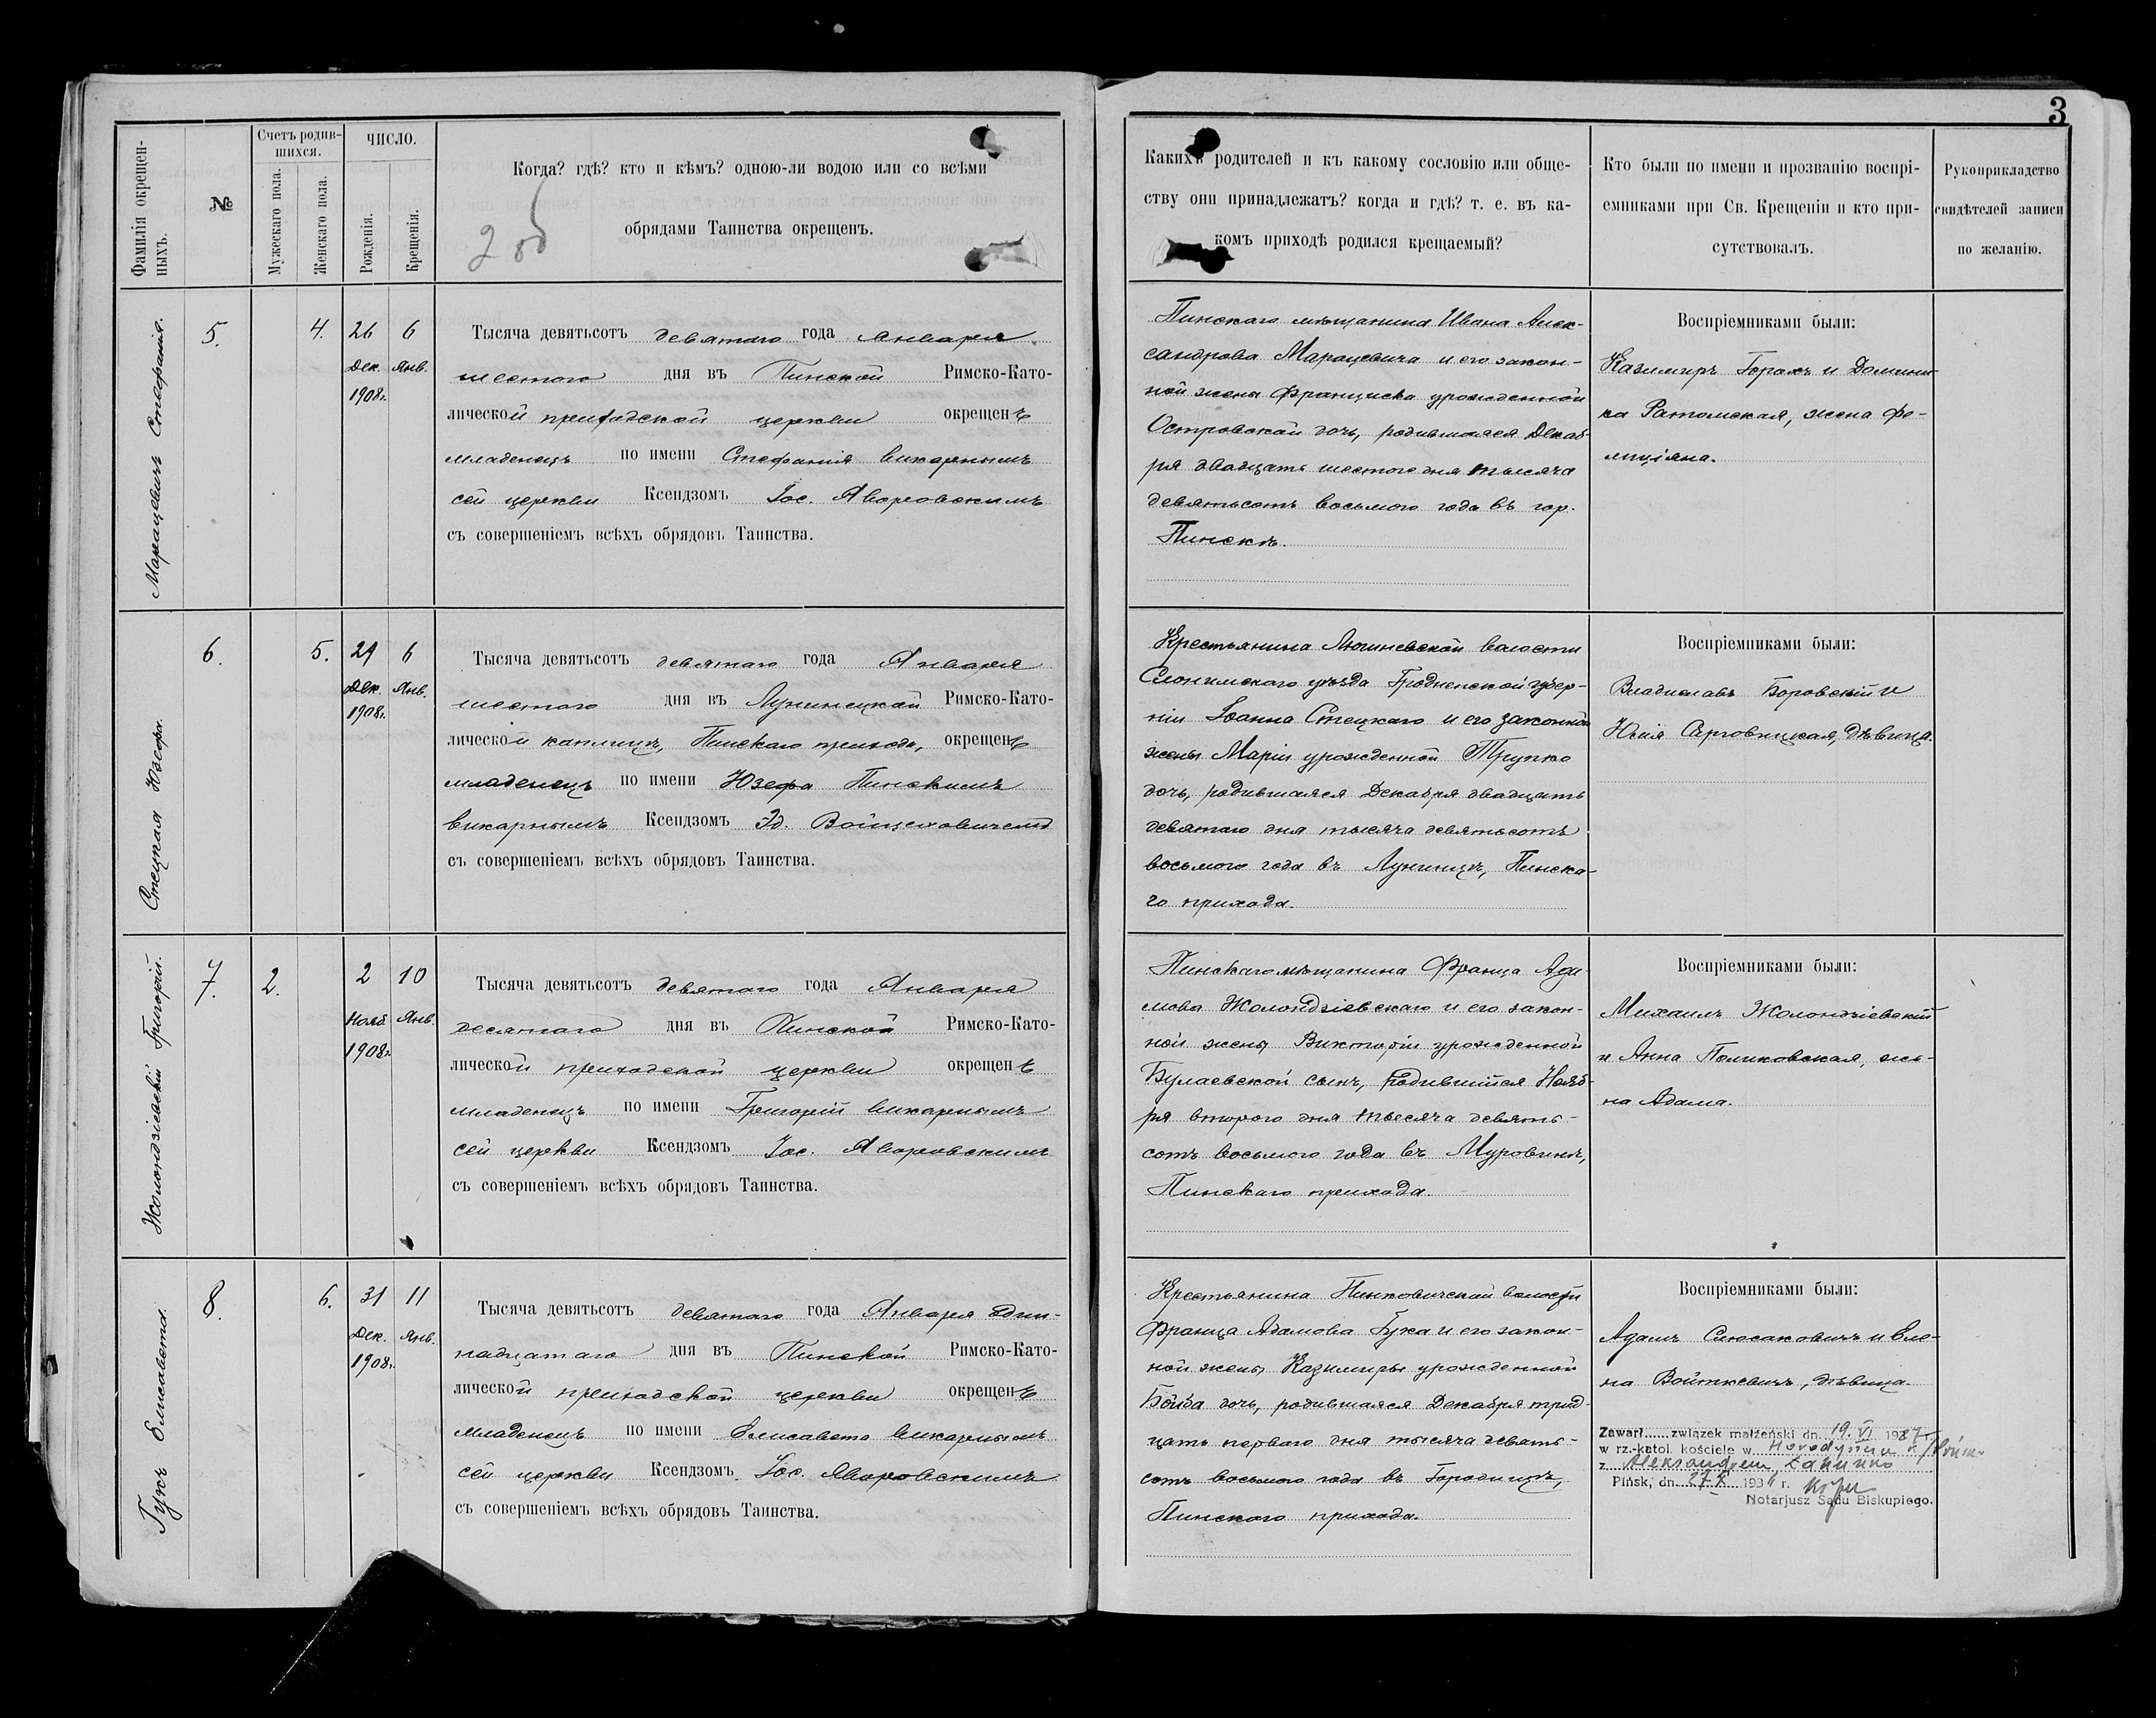 3
Фамилія окрещен-
ныхъ.
№
Счетъ родив-
шихся.
Мужескаго пола.
Женскаго пола.
ЧИСЛО.
Рожденія.
Крещенія.
Когда? гдѣ? кто и кѣмъ? одною-ли водою или со всѣми
обрядами Таинства окрещенъ.
Какихъ родителей и къ какому сословію или обще-
ству они принадлежатъ? когда и гдѣ? т. е. въ ка-
комъ приходѣ родился крещаемый?
Кто были по имени и прозванію воспрі-
емниками при Св. Крещеніи и кто при-
сутствовалъ.
Рукоприкладство
свидѣтелей записи
по желанію.
Марацевичъ Стефанія.
5.
4.
26
Дек.
1908г.
6
Янв.
Тысяча девятьсотъ девятаго года Января
шестого дня въ Пинской Римско-Като-
лической приходской церкви окрещенъ
младенецъ по имени Стефанія викарнымъ
сей церкви Ксендзомъ Іос. Яворовскимъ
съ совершеніемъ всѣхъ обрядовъ Таинства.
Пинскаго мѣщанина Ивана Алек-
сандрова Марацевича и его закон-
ной жены Франциска урожденной
Островской дочь, родившаяся Декаб-
ря двадцать шестого дня тысяча
девятьсотъ восьмого года въ гор.
Пинскѣ.
Воспріемниками были:
Казимиръ Горахъ и Домини-
ка Ратомская, жена Фе-
лиціяна.
Стецкая Юзефа.
6.
5.
29
Дек.
1908г.
6
Янв.
Тысяча девятьсотъ девятаго года Января
шестого дня въ Лунинецкой Римско-Като-
лической каплицѣ, Пинскаго прихода, окрещенъ
младенецъ по имени Юзефа Пинскимъ
викарнымъ Ксендзомъ Эд. Войцеховичемъ
съ совершеніемъ всѣхъ обрядовъ Таинства.
Крестьянина волости
Слонимскаго уѣзда Гродненской губер-
ніи Іоанна Стецкаго и его законной
жены Маріи урожденной Трупко
дочь, родившаяся Декабря двадцать
девятаго дня тысяча девятьсотъ
восьмого года въ Лунинцѣ, Пинска-
го прихода.
Воспріемниками были:
Владиславъ Боровскій и
Юлія девица.
Жолондзіевскій Григорій.
7.
2.
2
Нояб.
1908г.
10
Янв.
Тысяча девятьсотъ девятаго года Января
десятаго дня въ Пинской Римско-Като-
лической приходской церкви окрещенъ
младенецъ по имени Григорій викарнымъ
сей церкви Ксендзомъ Іос. Яворовскимъ
съ совершеніемъ всѣхъ обрядовъ Таинства.
Пинскаго мѣщанина Франца Ада-
мова Жолондзіевскаго и его закон-
ной жены Викторіи урожденной
Булаевской сынъ, родившійся Нояб-
ря второго дня тысяча девять-
сотъ восьмого года въ Муровинѣ,
Пинскаго прихода.
Воспріемниками были:
Михаилъ Жолондзіевскій
и Анна Поликовская, же-
на Адама.
Гукъ Елисавета.
8.
6.
31
Дек.
1908г.
11
Янв.
Тысяча девятьсотъ девятаго года Января один-
надцатаго дня въ Пинской Римско-Като-
лической приходской церкви окрещенъ
младенецъ по имени Елисавета викарнымъ
сей церкви Ксендзомъ Іос. Яворовскимъ
съ совершеніемъ всѣхъ обрядовъ Таинства.
Крестьянина Пинковичской волости
Франца Адамова Гука и его закон-
ной жены Казимиры урожденной
Бойба дочь, родившаяся Декабря трид-
цать перваго дня тысяча девять-
сотъ восьмого года въ Городищѣ,
Пинскаго прихода.
Воспріемниками были:
Адамъ Слюсаковичъ и Еле-
на Войткевичъ, дѣвица.
Zawarł...... związek małżeński dn. 19. VI 1937 r.
w rz.-katol. kościele w Horodyszczu
z Aleksandrem
Pińsk, dn. 27 X 193 r.
Notarjusz Sądu Biskupiego.